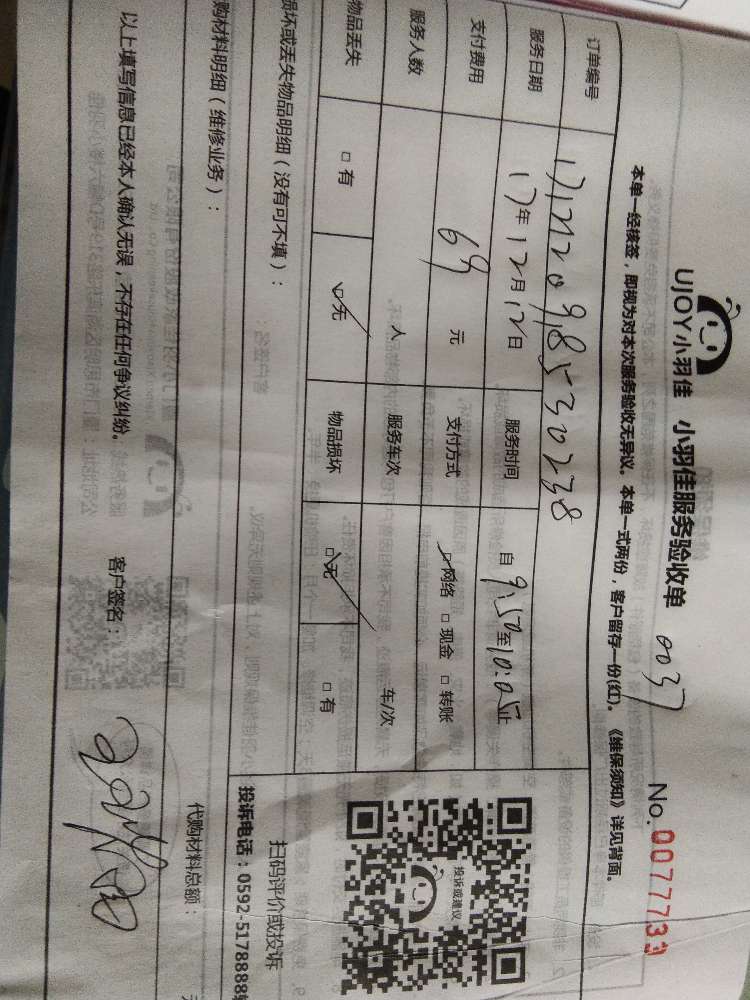 UJOY小羽佳 小羽佳服务验收单 0037 No.0077733
本单一经核签，即视为对本次服务验收无异议。本单一式两份，客户留存一份(红)。《维保须知》详见背面。
订单编号 171212098530238
服务日期 17年12月12日 服务时间 自9:50至10:05止
支付费用 69元 支付方式 ☑网络 □现金 □转账
服务人数 人 服务车次 车/次
物品丢失 □有 ☑无 物品损坏 ☑无 □有
损坏或丢失物品明细（没有可不填）：
购材料明细（维修业务）：
代购材料总额：
以上填写信息已经本人确认无误，不存在任何争议纠纷。 客户签名：
投诉或建议
扫码评价或投诉
投诉电话：0592-5178888